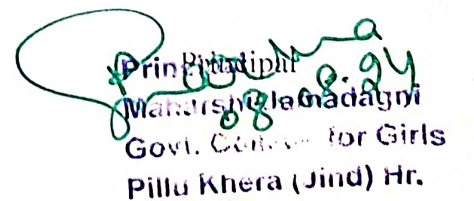 Principal
08.08.24
Maharshi Jamadagni
Govt. College for Girls
Pillu Khera (Jind) Hr.